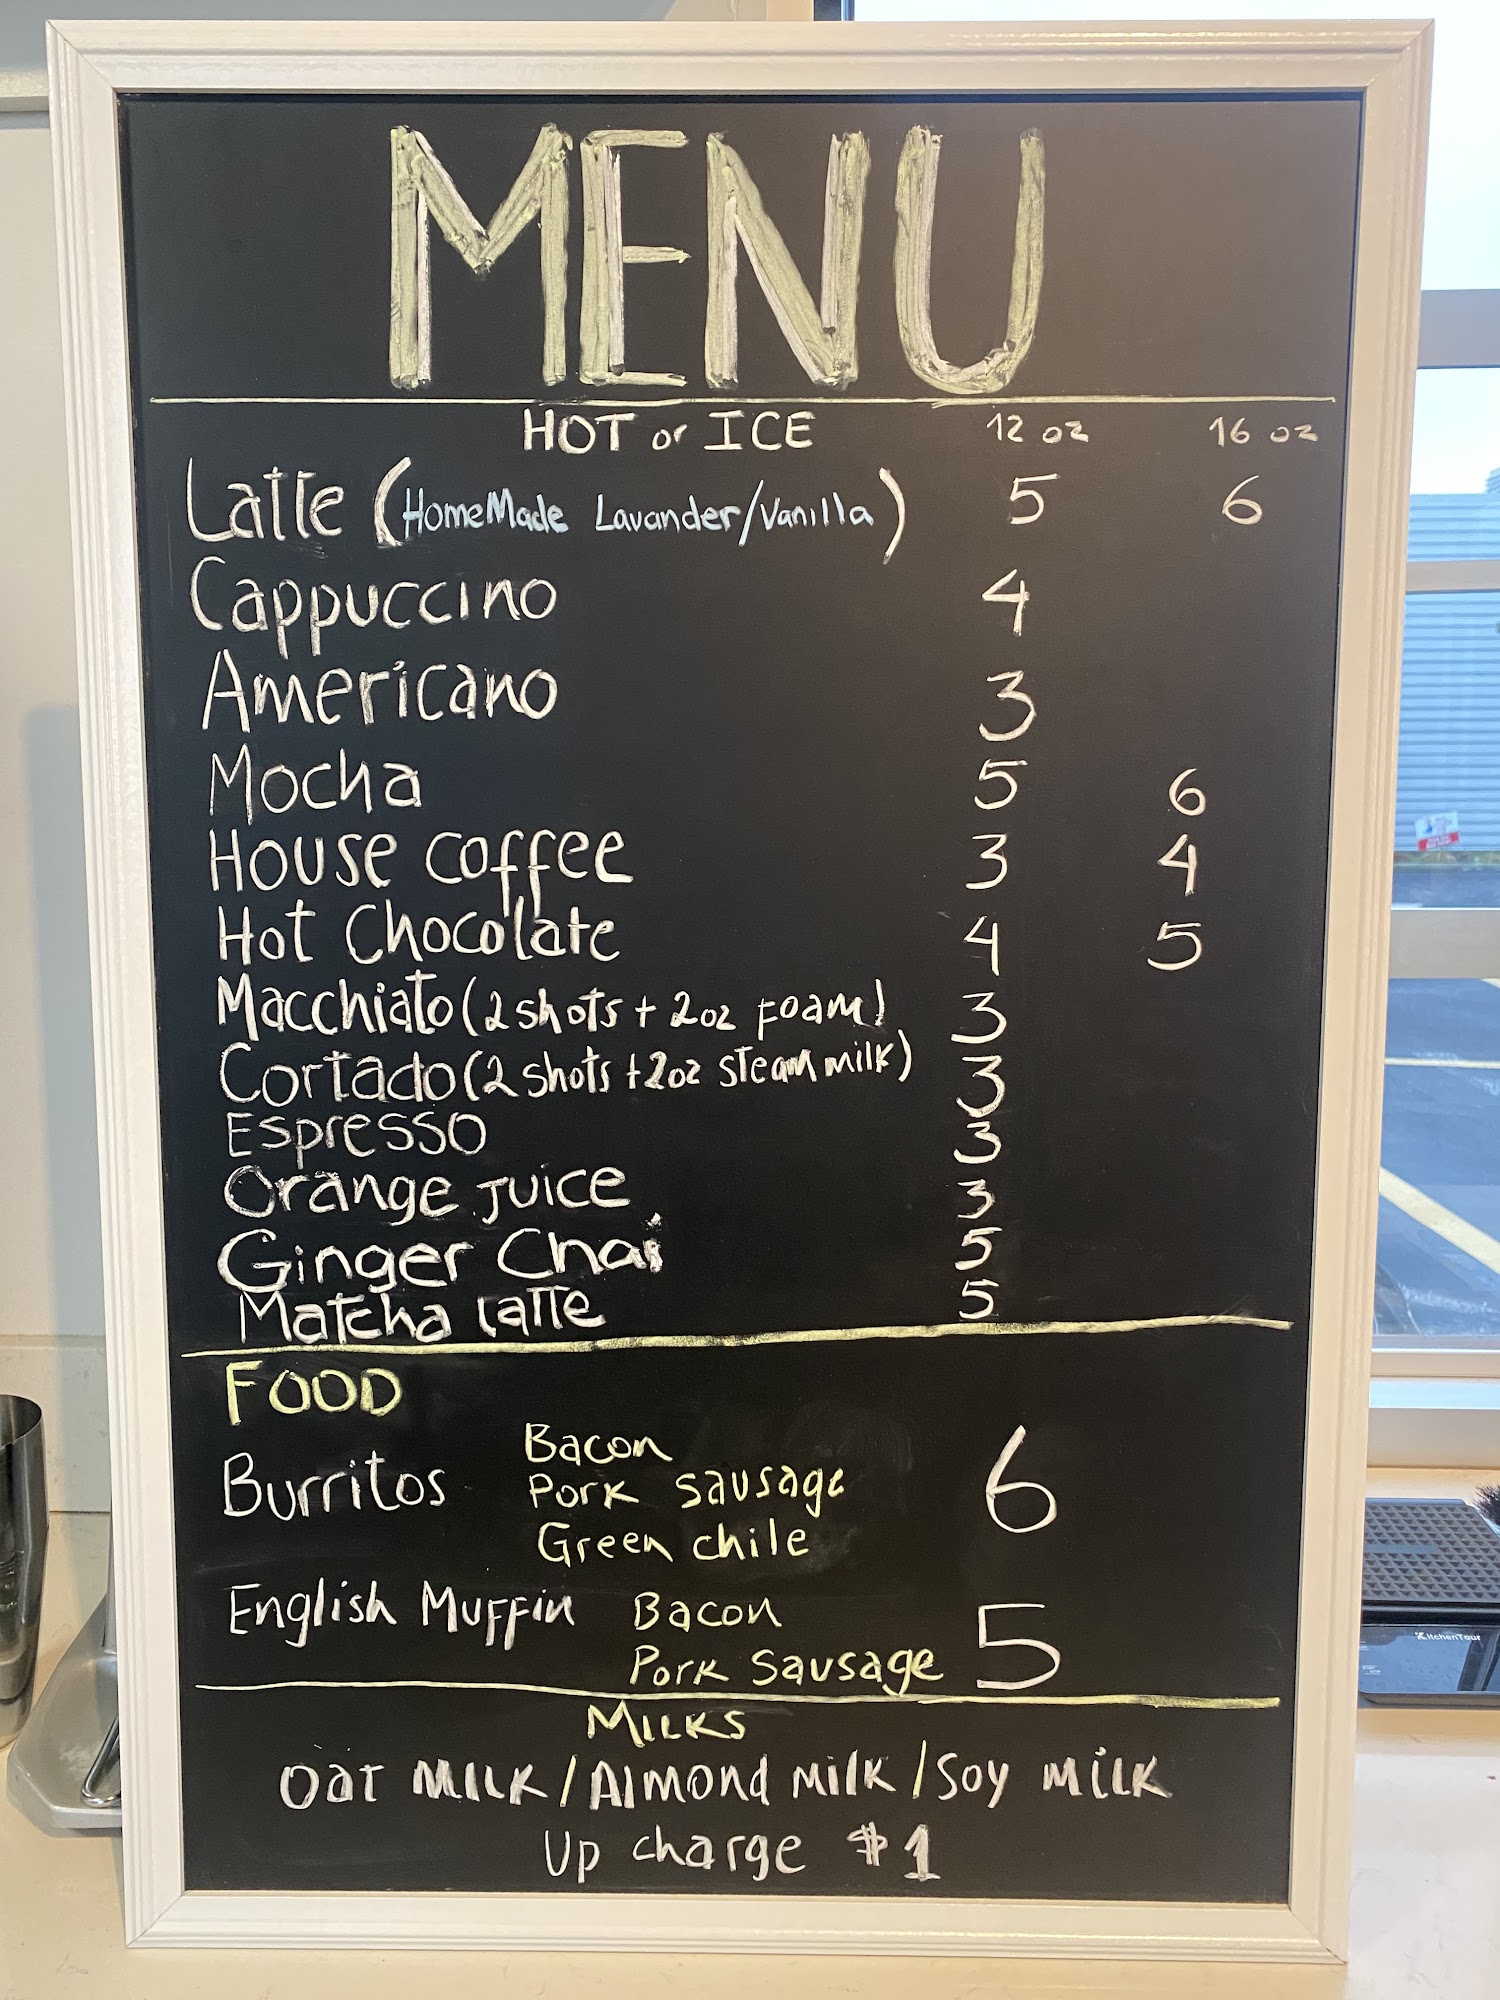 MENU
HOT or ICE 12 oz 16 oz
Latte (HomeMade Lavander/Vanilla) 5 6
Cappuccino 4
Americano 3
Mocha 5 6
House coffee 3 4
Hot Chocolate 4 5
Macchiato (2 shots + 2oz Foam) 3
Cortado (2 shots + 2oz steam milk) 3
Espresso 3
Orange Juice 3
Ginger Chai 5
Matcha Latte 5
FOOD
Burritos Bacon 6
Pork Sausage
Green chile
English Muffin Bacon 5
Pork Sausage
MILKS
Oat Milk / Almond Milk / Soy Milk
Up charge $1
KitchenTour